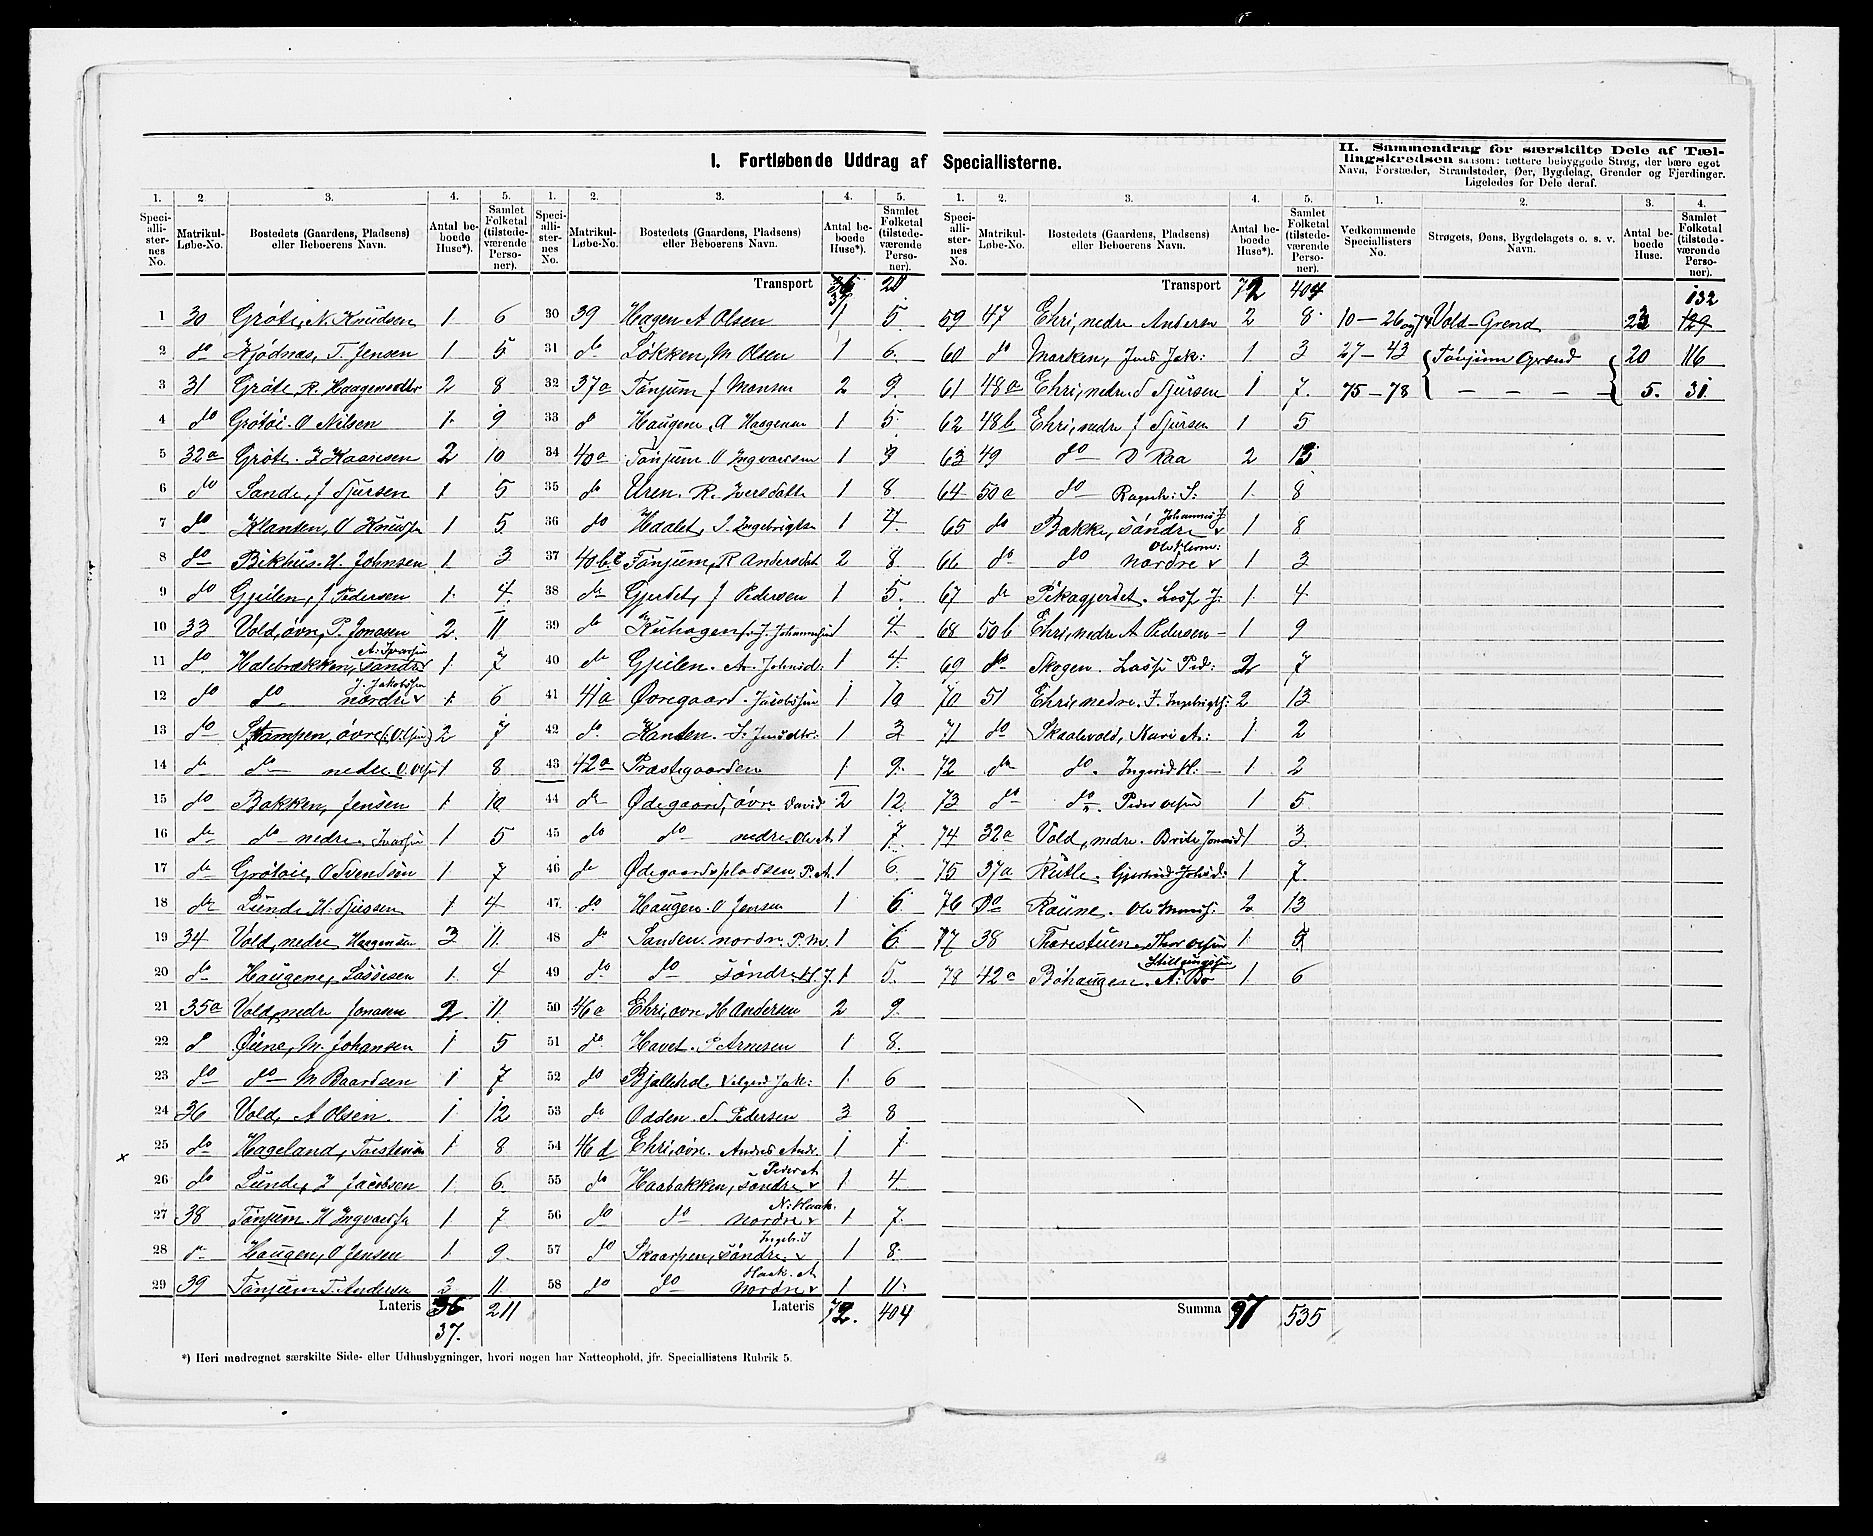 I. Fortløbende Uddrag af Speciallisterne.
II. Sammendrag for særskilte Dele af Tæl-
lingskredsen saasom: tættere bebyggede Strøg, der bære eget
Navn, Forstæder, Strandsteder, Øer, Bygdelag, Grender og Fjerdinger.
Ligeledes for Dele deraf.
1. 2 3. 4. 5.
Speciallisternes No. Matrikul-Løbe-No. Bostedets (Gaardens, Pladsens) eller Beboerens Navn. Antal beboede Huse*). Samlet Folketal (tilstedeværende Personer).
1 30 Gröte, N. Knudsen 1 6
2 do Kjödnæs, T. Jensen 1 5
3 31 Gröte R. Haagensdtr 2 8
4 do Grötöi. O Nilsen 1 9
5 32a Gröte. I Haansen 2 10
6 do Sande, J Sjursen 1 5
7 do Klanten, O Knudsn 1 5
8 do Bikhus. H. Johnsen 1 3
9 do Gjeilen, J Pedersen 1 4
10 33 Vold, övre, P. Jonasen 2. 11
11 do Halebrækken, söndre A. Ivarsen 1 7
12 do do nordre J. Jakobsen 1 6
13 do Stampen, övre (O. Olsen) 2 7
14 do do nedre. O. Olsen 1 8
15 do Bakken, Jensen 1 10
16 do do nedre. Ivarsen 1 5
17 do Grötöie, O Svendsen 1 7
18 do Lunde H. Sjursen 1 4
19 34 Vold, nedre Haagensen 3 11
20 do Haugene, Lassesen 1 4
21 35a Vold, nedre Jonasen 2 11
22 d Øiene, M. Johansen 1 5
23 do do M Baardsen 1 7
24 36 Vold, A Olsen 1 12
25 do Hageland, Torstensen 1 8
26 do Lunde, I Jacobsen 1 6
27 38 Tönjum. H Ingvarsn 1 7
28 do Haugen, O Jensen 1 9
29 39 Tönjum T. Andersen 2 11
Lateris 36 211
37.
1. 2. 3. 4. 5.
Speciallisternes No. Matrikul-Løbe-No. Bostedets (Gaardens, Pladsens) eller Beboerens Navn. Antal beboede Huse*). Samlet Folketal (tilstedeværende Personer).
Transport 36 37 211
30 39 Hagen A Olsen 1 5
31 do Lökken, M Olsen 1 6
32 37a Tönjum J Monsen 2 9
33 d Haugene, A Haagensen 1 5
34 40a Tönjum O Ingvarsen 1 3
35 do Uren. R. Iversdatt 1 8
36 do Haalet, I. Ingebrigtsn 1 4
37 40b,c Tönjum, R Andersdat 2 8
38 do Gjerdet, J Pedersen 1 5
39 do Kuhagen, J. Johannesen 1 4
40 do Gjeilen. A. Johnsd: 1 4
41 41a Övregaard. Jacobsen 1 10
42 do Kanten. S. Jensdtr: 1 3
43 42a Præstegaarden 1 9
44 do Ødegaard, övre David 2 12
45 do do nedre Ole A. 1 7
46 do Ødegaardspladsen. P. A. 1 6
47 do Haugen. O Jensen 1 6
48 do Sanden. nordre P. M. 1 6
49 do do söndre H. J. 1 5
50 46a Ehri, övre H Andersen 2 9
51 do Havet. P Arnesen 1 8
52 do Bjallehol. Jak: 1 6
53 do Odden. S. Pedersen 3 8
54 46d Ehri, övre. Anders Andr. 1 1
55 do Haabakken, söndre Peder A. 1 4
56 do do nordre N. Haak. 1 7
57 do Skaarpen, söndre Ingeb. I 1 8
58 do do nordre Haak. A 1 11
Lateris 72. 404
1. 2. 3. 4. 5.
Speciallisternes No. Matrikul-Løbe-No. Bostedets (Gaardens, Pladsens) eller Beboerens Navn. Antal beboede Huse*). Samlet Folketal (tilstedeværende Personer).
Transport 72 404
59 47 Ehri, nedre Andersn 2 8
60 do Marken, Jens Jak: 1 3
61 48a Ehri, nedre d Sjursen 1 7
62 48b Ehri, nedre J Sjursen 1 5
63 49 do D Raa 2 13
64 50a do Ragnh: S: 1 8
65 do Bakke, söndre Johannes J 1 8
66 do do nordre 1 3
67 do Pikagjerdet. Lasse J: 1 4
68 50b Ehri, nedre A Pedersen 1 9
69 do Skogen. Lasse Ped: 2 7
70 51 Ehri, nedre. I. Ingebrigts: 2 13
71 do Skaalevold, Kari A: 1 2
72 do do. Ingerid H: 1 2
73 do do. Peder Olsen 1 5
74 32a Vold, nedre. Brite Jonsd 1 3
75 37a Rutle. Gjertrud Johsd: 1 7
76 do Raune. Ole Monss: 2 13
77 38 Thorestuen. Thor Olsen 1 5
78 42a Böhaugen. A: Bö 1 6
Summa 97 535
1. 2. 3. 4.
Vedkommende Speciallisters No. Strøgets, Øens, Bygdelagets o. s. v. Navn. Antal beboede Huse. Samlet Folketal (tilstedeværende Personer).
10 — 26 og 74 Vold-Grend 23 129 132
27 — 43 Tönjum Grend 20 116
75 — 78 — — — — 5. 31
*) Heri medregnet særskilte Side- eller Udhusbygninger, hvori nogen har Natteophold, jfr. Speciallistens Rubrik 5.